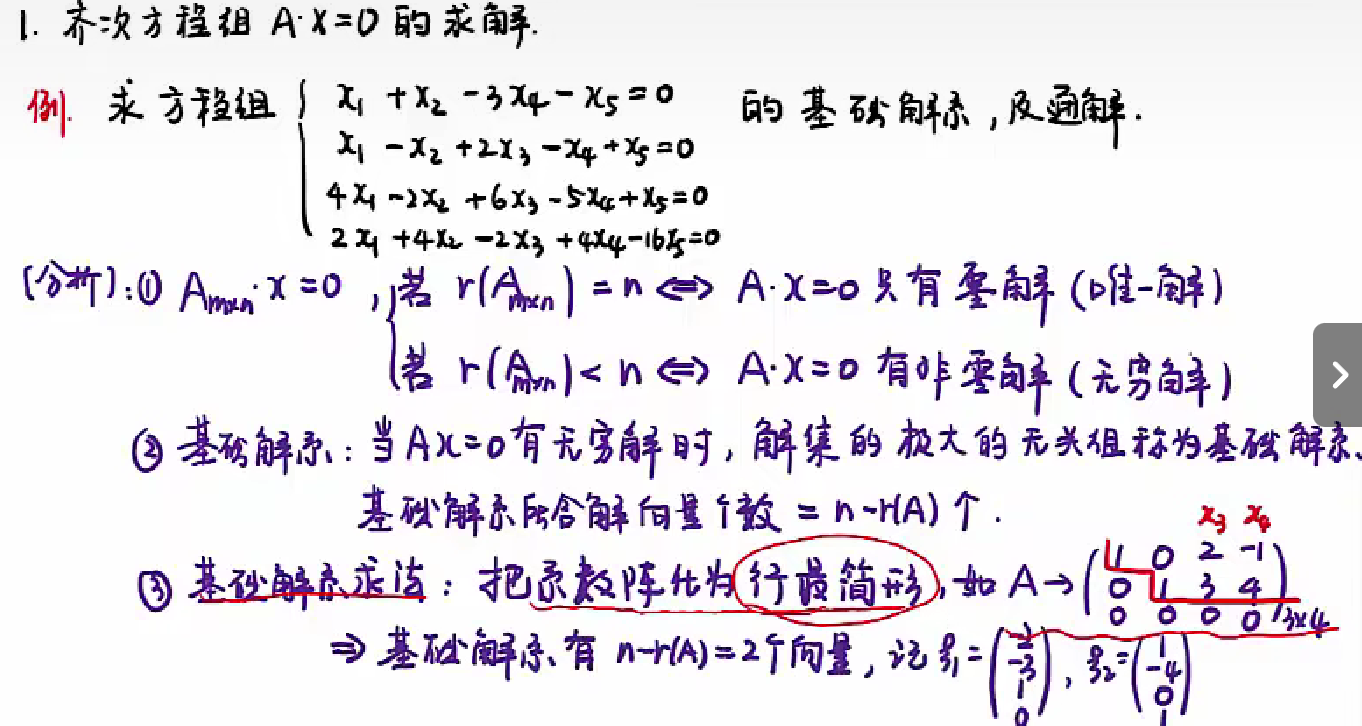 1. 齐次方程组 A·X=0 的求解.
例. 求方程组 { x₁ + x₂ - 3x₄ - x₅ = 0 的基础解系, 及通解.
x₁ - x₂ + 2x₃ - x₄ + x₅ = 0
4x₁ - 2x₂ + 6x₃ - 5x₄ + x₅ = 0
2x₁ + 4x₂ - 2x₃ + 4x₄ - 16x₅ = 0
[分析]: ① Aₘₓₙ·x = 0, { 若 r(Aₘₓₙ) = n ⇔ A·X=0 只有零解 (唯一解)
若 r(Aₘₓₙ) < n ⇔ A·X=0 有非零解 (无穷解)
② 基础解系: 当 AX=0 有无穷解时, 解集的极大的无关组称为基础解系、
基础解系所含解向量个数 = n-r(A) 个.
x₃ x₄
③ 基础解系求法: 把系数阵化为行最简形, 如 A → (1 0 2 -1
0 1 3 4
0 0 0 0)3×4
⇒ 基础解系有 n-r(A)=2个向量, 记 ξ₁=( -3 1 0), ξ₂=(1 -4 0 1)